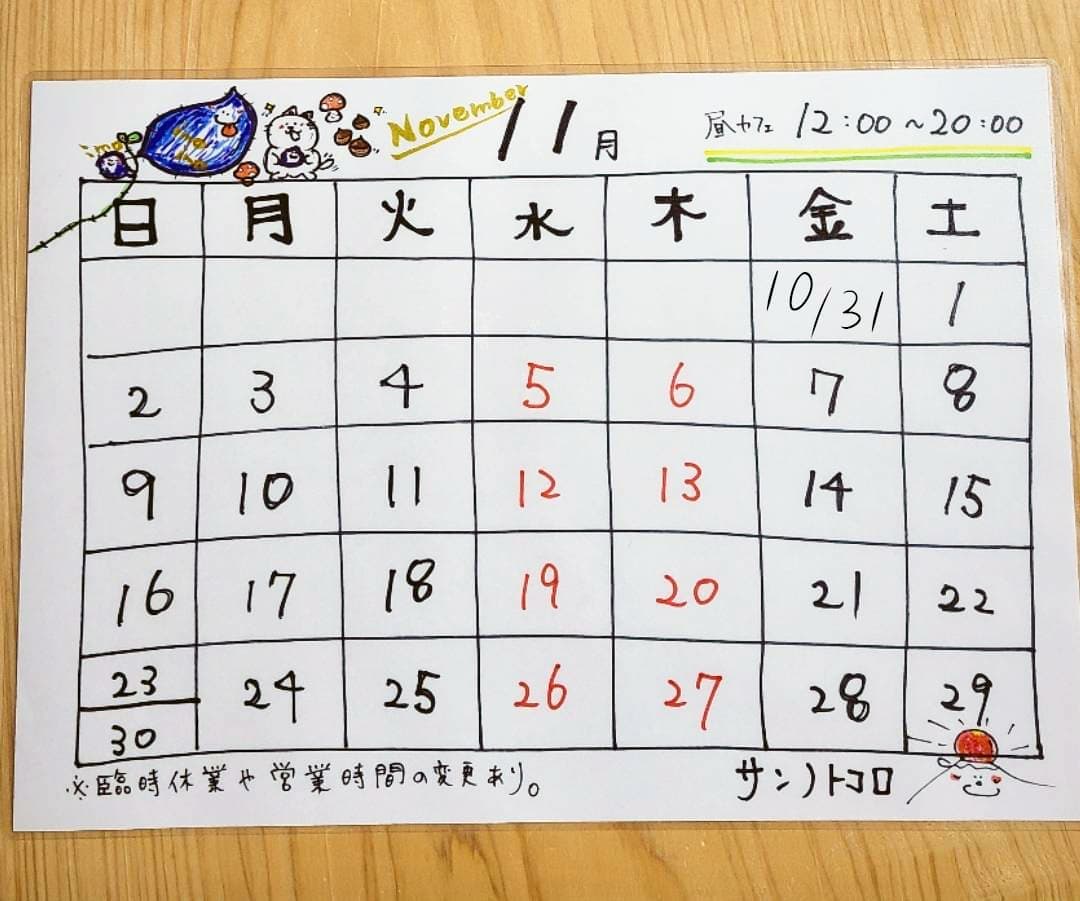 imo
November 11月
昼カフェ 12:00~20:00
日 月 火 水 木 金 土
10/31 1
2 3 4 5 6 7 8
9 10 11 12 13 14 15
16 17 18 19 20 21 22
23 24 25 26 27 28 29
30
※臨時休業や営業時間の変更あり。
サンノトコロ